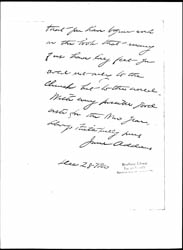 that you have begun work
on the book that many
of us have long felt you
owed not only to the
Church but to the world.
With every possible good
wish for the New Year,
Always faithfully yours
Jane Addams